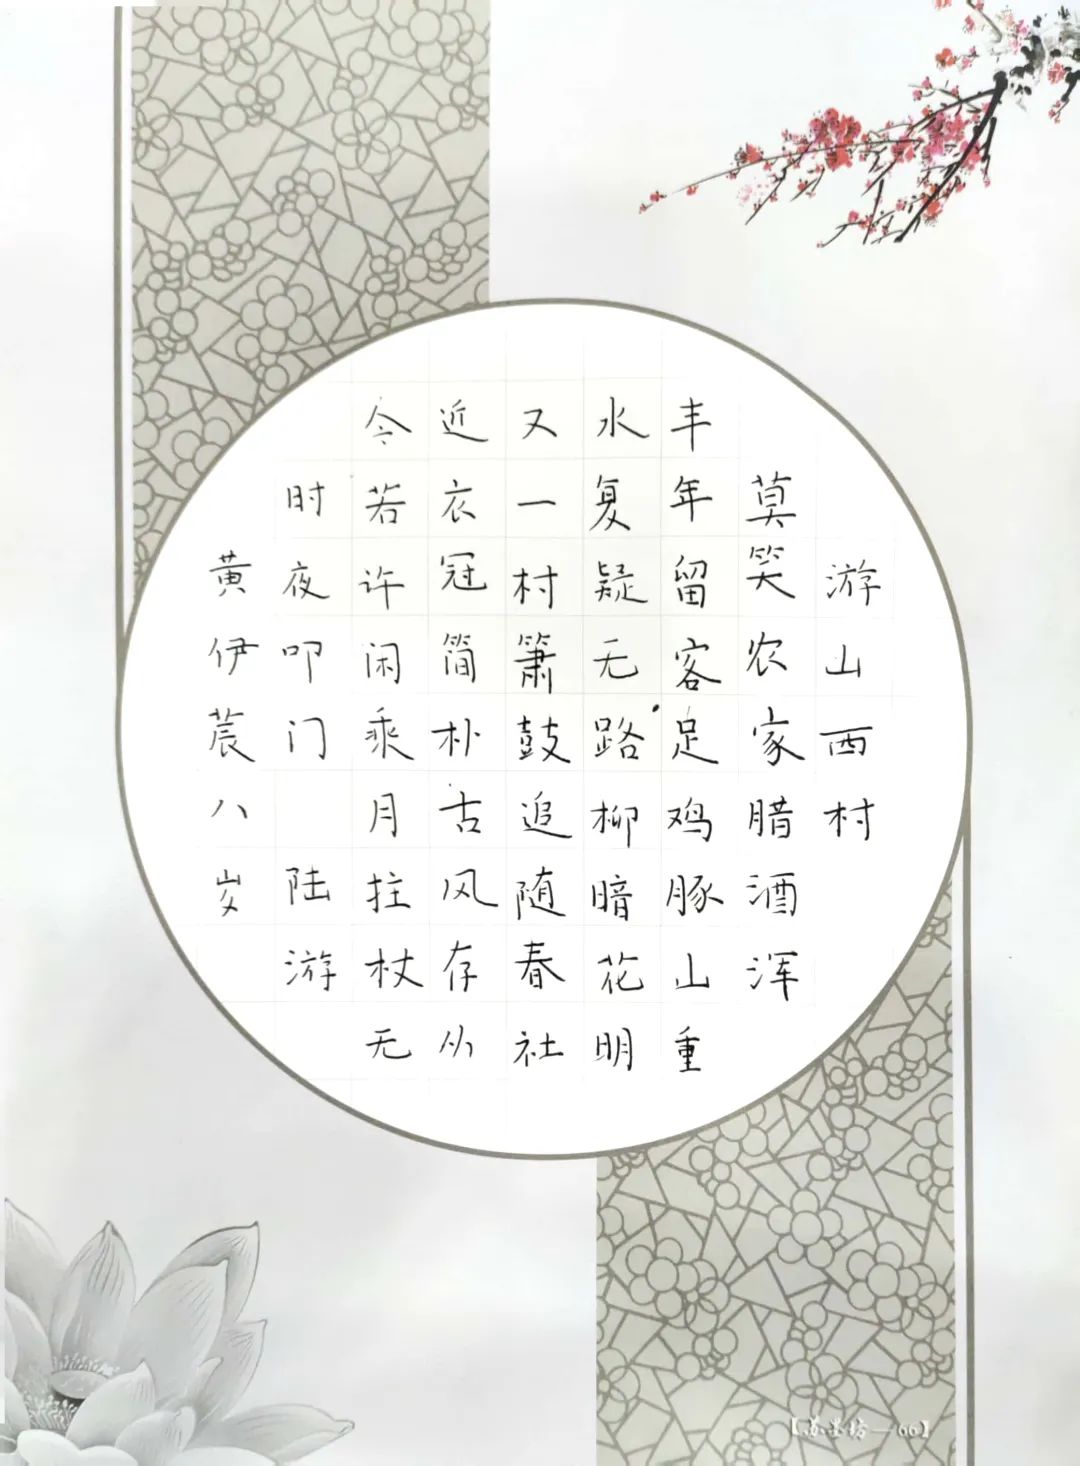 游山西村
莫笑农家腊酒浑
丰年留客足鸡豚山重
水复疑无路柳暗花明
又一村箫鼓追随春社
近衣冠简朴古风存从
今若许闲乘月拄杖无
时夜叩门 陆游
黄伊莀八岁
【苏墨坊—66】